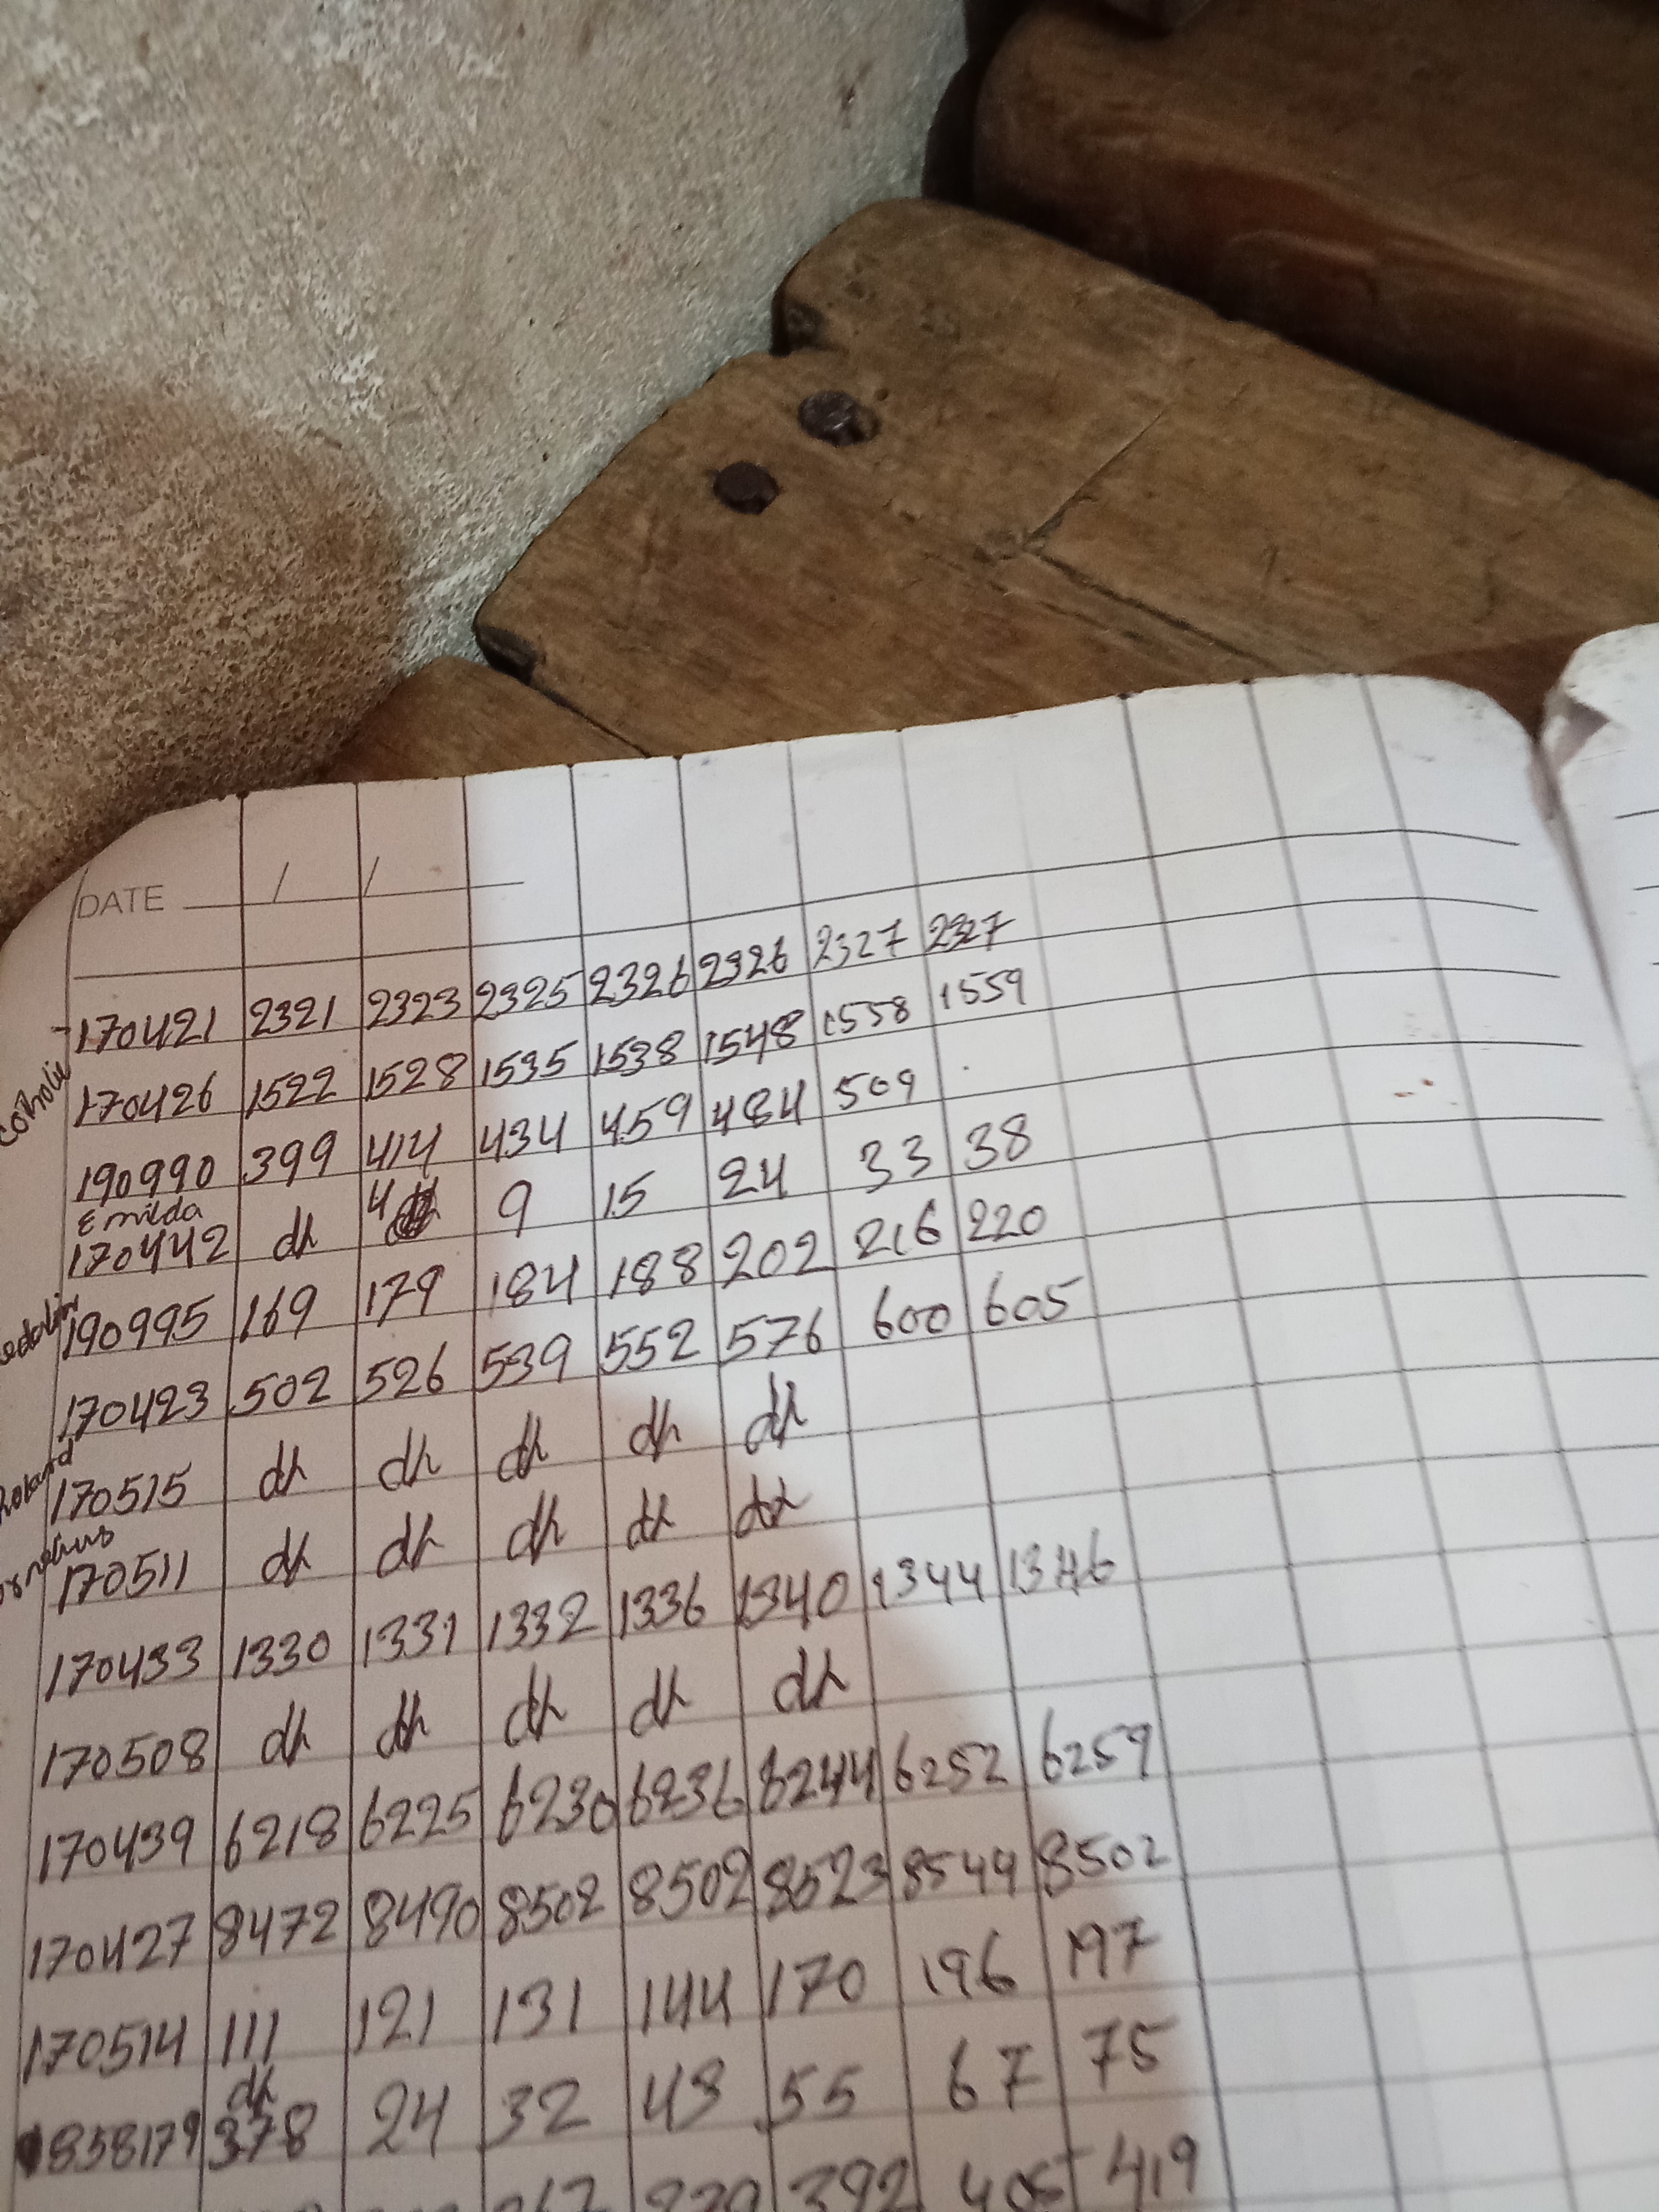 DATE / /
170421 2321 2323 2325 2326 2326 2327 2327
170426 1522 1528 1535 1538 1548 1558 1559
190990 399 414 434 459 484 509
Emilda
170442 dh 4 9 15 24 33 38
190995 169 179 184 188 202 216 220
170423 502 526 539 552 576 600 605
170515 dh dh dh dh dh
170511 dh dh dh dh dh
170433 1330 1331 1332 1336 1340 1344 1346
170508 dh dh dh dh dh
170439 6218 6225 6230 6236 6244 6252 6259
170427 8472 8490 8502 8502 8523 8544 8502
170514 111 121 131 144 170 196 197
dh
858179 378 24 32 43 55 67 75
392 405 419